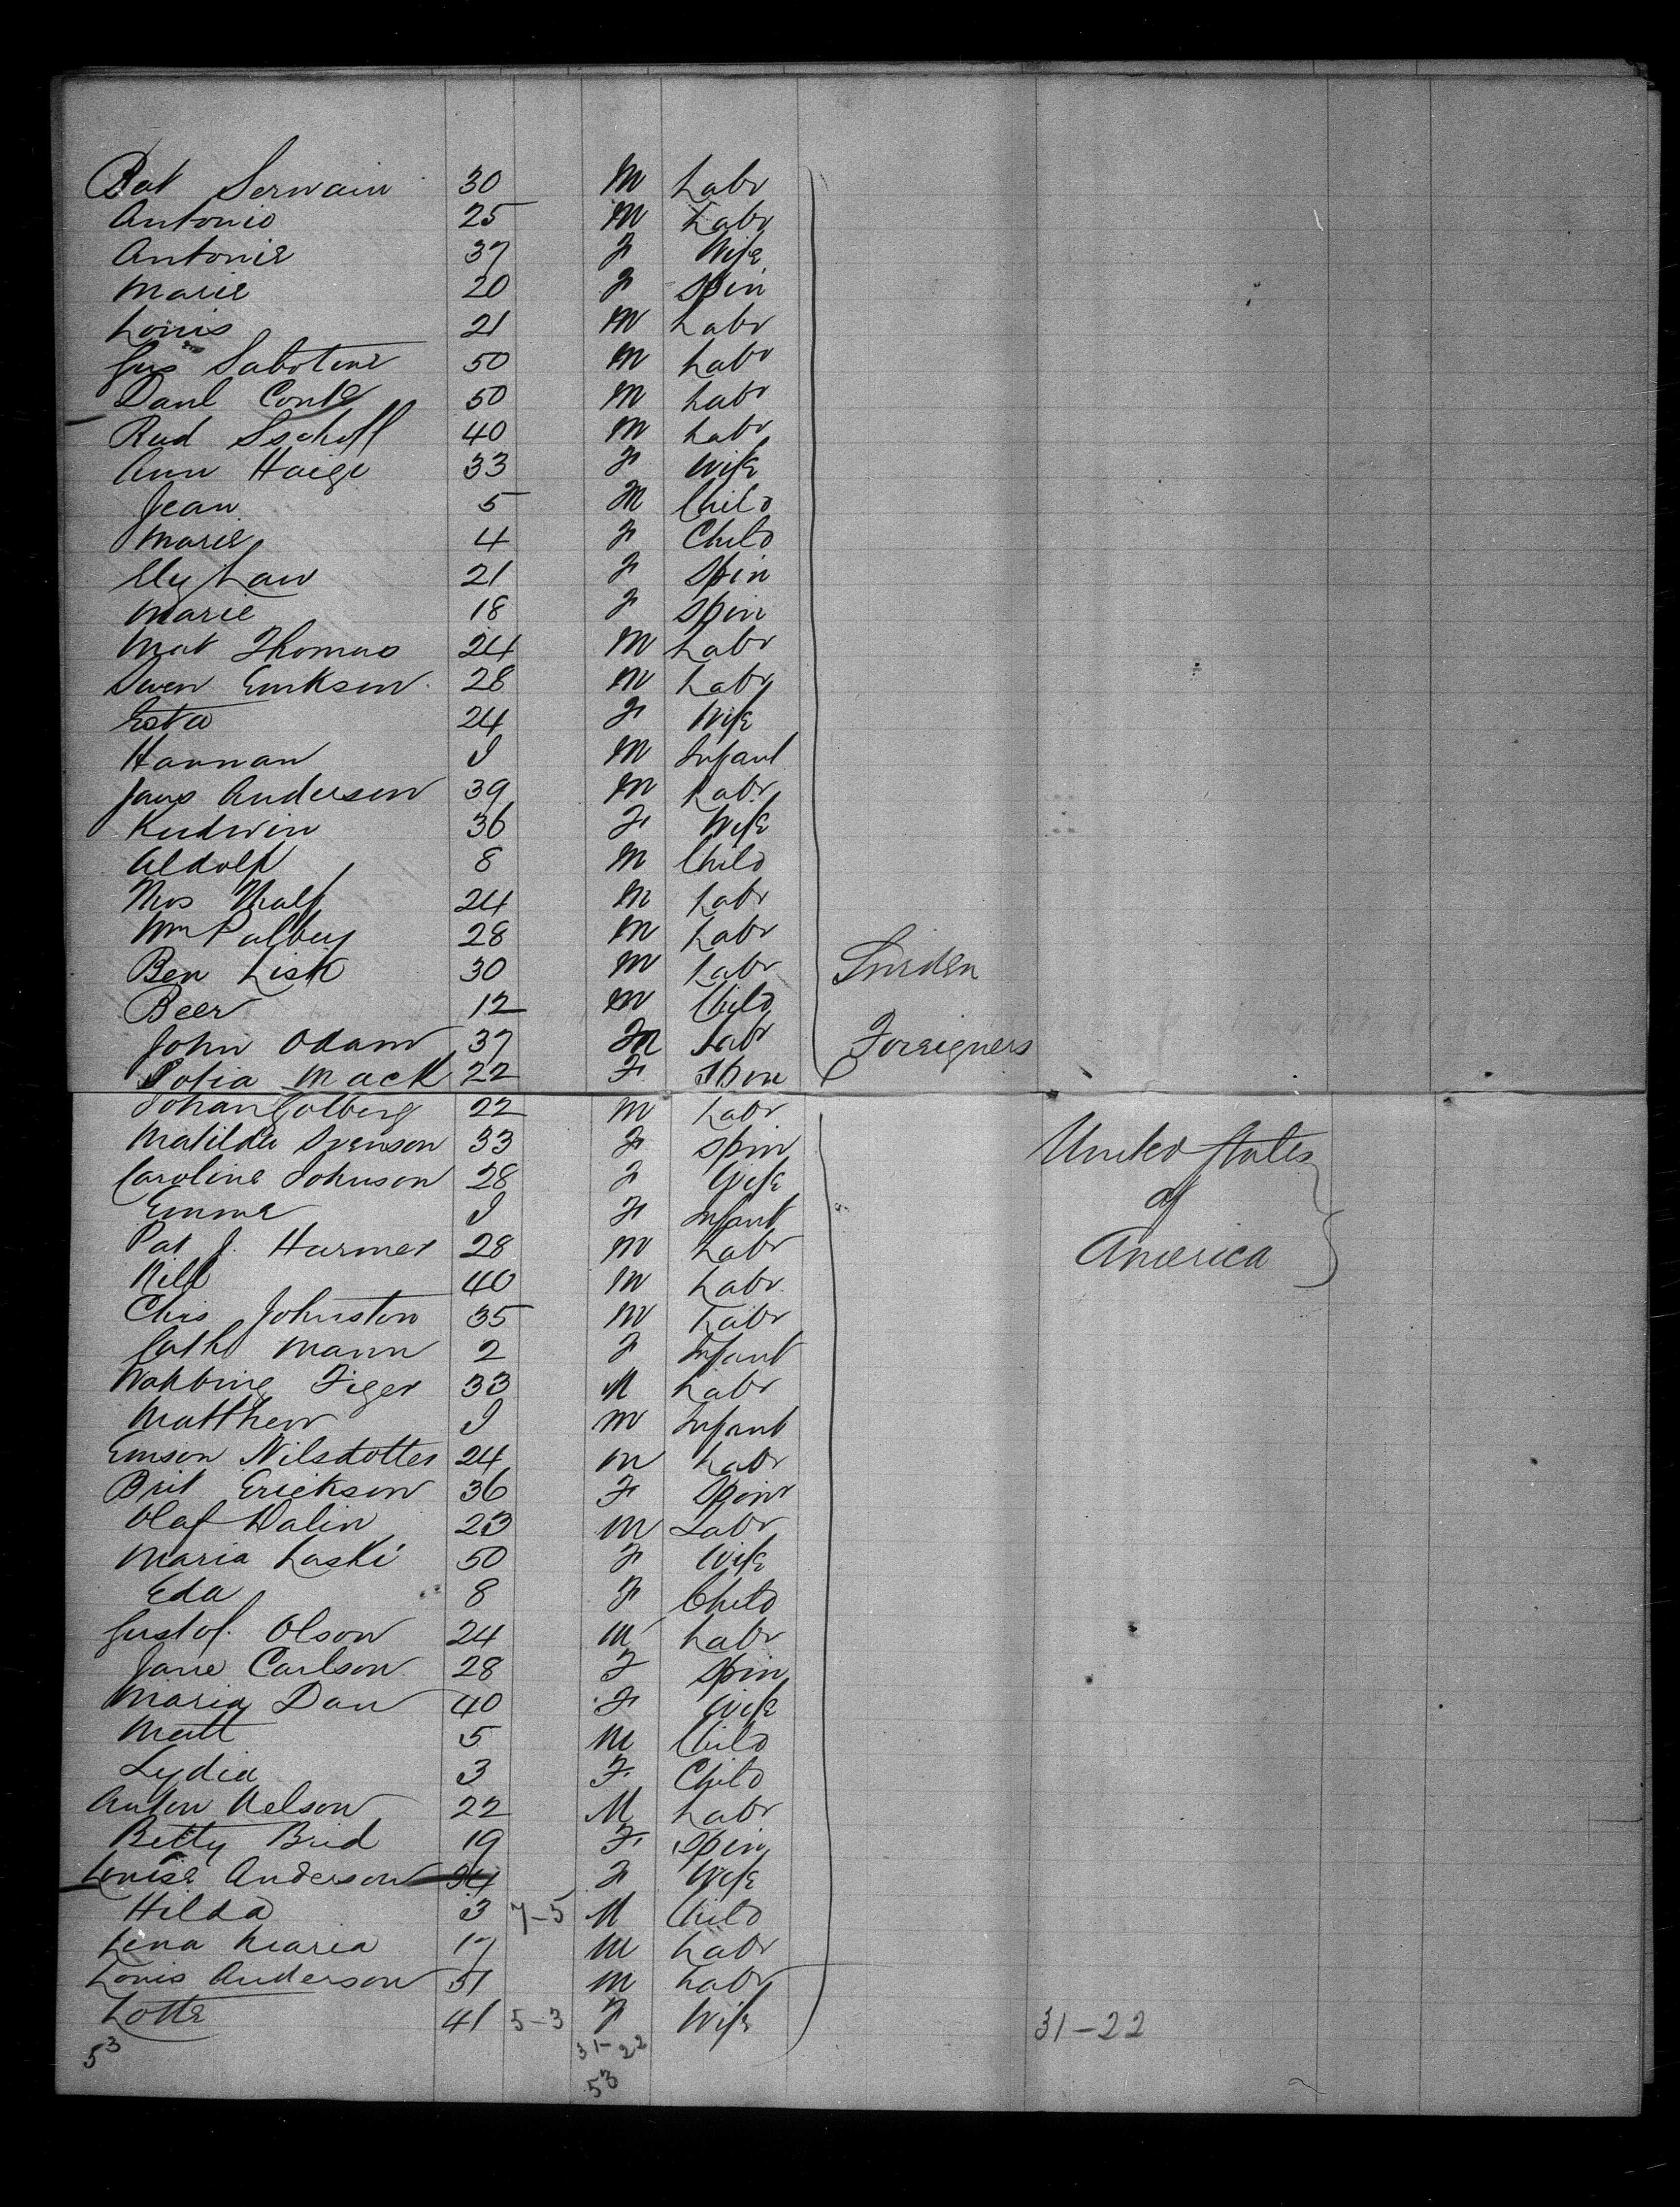 Bat Servain 30 M Labr
Antonio 25 M Labr
Antonie 37 F Wife
Marie 20 F Spin
Louis 21 M Labr
Sabotine 50 M Labr
Danl Conte 50 M Labr
Rud 40 M Labr
Ann Haige 33 F Wife
Jean 5 M Child
Marie 4 F Child
Law 21 F Spin
Marie 18 F Spin
Mat Thomas 24 M Labr
Swen Erikson 28 M Labr
Esta 24 F Wife
Hannan I M Infant
Jans Anderson 39 M Labr
Kudwin 36 F Wife
Aldolf 8 M Child
24 M Labr
Wm Palbuy 28 M Labr
Ben Lisk 30 M Labr Sweden
Beer 12 M Child
John Odam 37 M Labr Foreigners
Sofia Mack 22 F Spin
Johan Golberg 22 M Labr
Matilda Svenson 33 F Spin United States
Caroline Johnson 28 F Wife of
Emma I F Infant
Pat J. Harmer 28 M Labr America
Nill 40 M Labr
Chris Johnston 35 M Labr
Cath Mann 2 F Infant
Figer 33 M Labr
Matthew I M Infant
Emson Nilsdotter 24 M Labr
Brit Erickson 36 F Spin
Olaf Dalin 23 M Labr
Maria Laski 50 F Wife
Eda 8 F Child
Gustof. Olson 24 M Labr
Jane Carlson 28 F Spin
Maria Dan 40 F Wife
Matt 5 M Child
Lydia 3 F Child
Anton Nelson 22 M Labr
Betty Brid 19 F Spin
Louise Anderson 34 F Wife
Hilda 3 7-5 M Child
Lena Maria 17 M Labr
Louis Anderson 51 M Labr
Lotte 41 5-3 F Wife 31-22
53 31-22
53